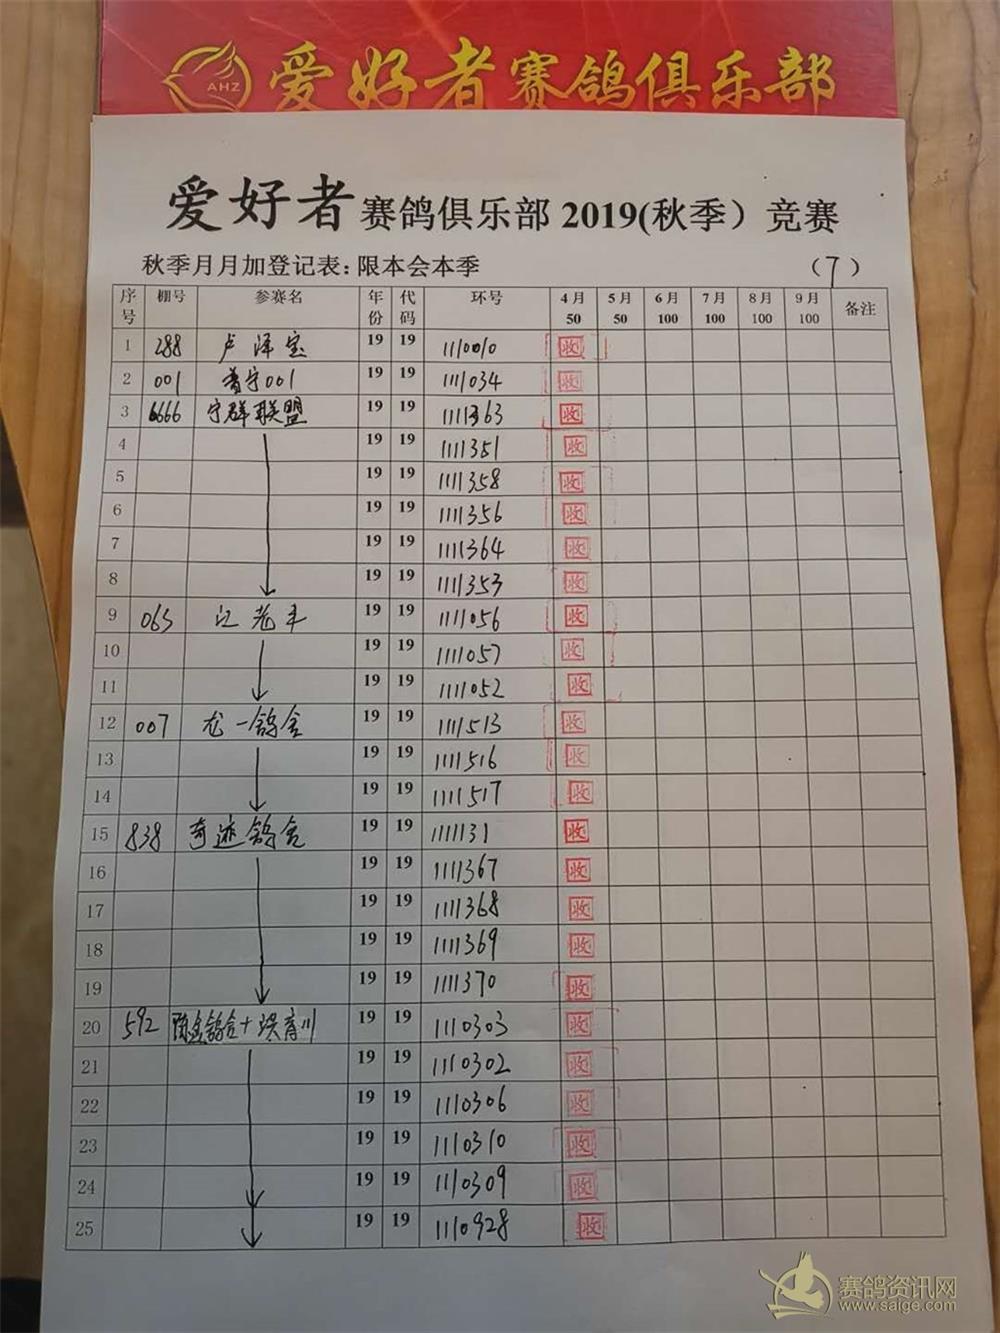 AHZ 爱好者赛鸽俱乐部
爱好者赛鸽俱乐部2019(秋季）竞赛
秋季月月加登记表：限本会本季 （7）
序号 棚号 参赛名 年份 代码 环号 4月50 5月50 6月100 7月100 8月100 9月100 备注
1 288 卢泽宝 19 19 1110010 收
2 001 普宁001 19 19 1111034 收
3 6666 宁群联盟 19 19 1111363 收
4 19 19 1111351 收
5 19 19 1111358 收
6 19 19 1111356 收
7 19 19 1111364 收
8 19 19 1111353 收
9 065 江老丰 19 19 1111056 收
10 19 19 1111057 收
11 19 19 1111052 收
12 007 龙一鸽舍 19 19 1111513 收
13 19 19 1111516 收
14 19 19 1111517 收
15 838 奇迹鸽舍 19 19 1111131 收
16 19 19 1111367 收
17 19 19 1111368 收
18 19 19 1111369 收
19 19 19 1111370 收
20 592 鸽舍+洪育川 19 19 1110303 收
21 19 19 1110302 收
22 19 19 1110306 收
23 19 19 1110310 收
24 19 19 1110309 收
25 19 19 1110928 收
赛鸽资讯网
www.saige.com